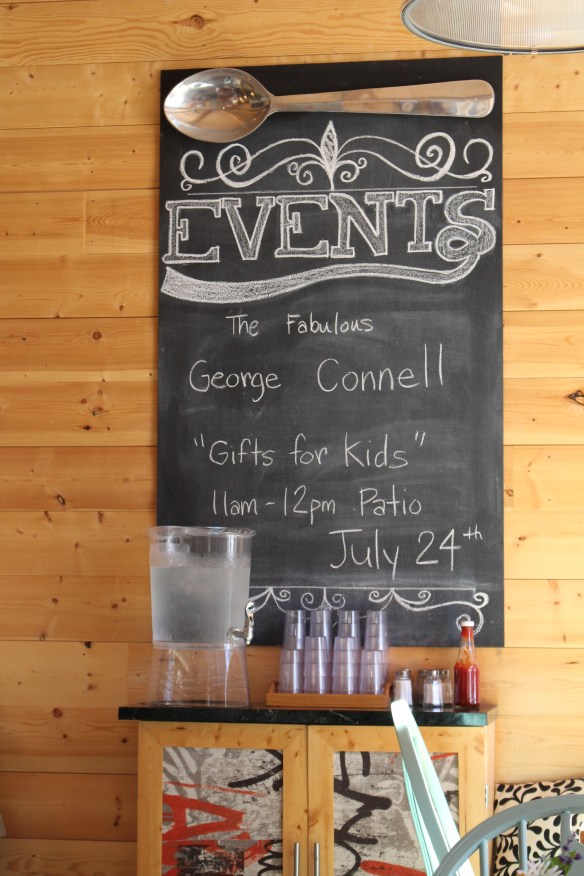 EVENTS
The Fabulous
George Connell
"Gifts for Kids"
11am - 12pm Patio
July 24th